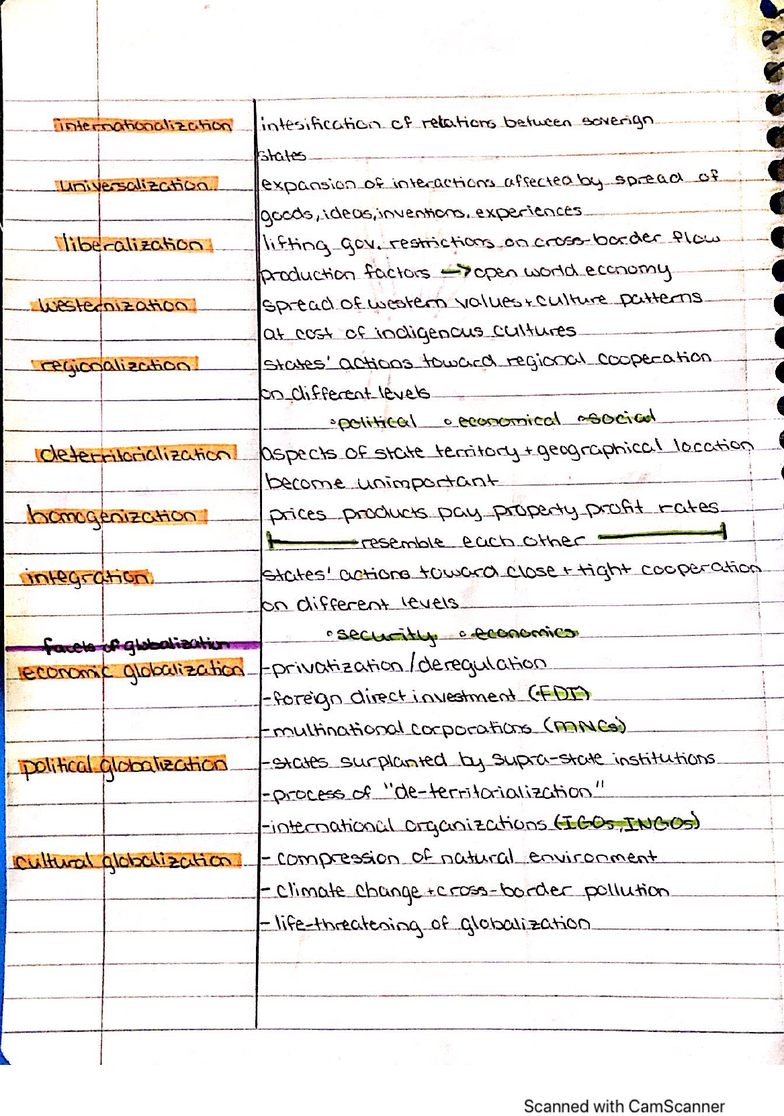 internationalization intesification of relations between soverign
states
universalization expansion of interactions affected by spread of
goods, ideas, inventions, experiences
liberalization lifting gov. restrictions on cross-border flow
production factors → open world economy
westernization spread of western values + culture patterns
at cost of indigenous cultures
regionalization states' actions toward regional cooperation
on different levels
◦political ◦economical ◦social
deterritorialization aspects of state territory + geographical location
become unimportant
homogenization prices products pay property profit rates
resemble each other
integration states' actions toward close + tight cooperation
on different levels
◦security ◦economics
facets of globalization
economic globalization -privatization/deregulation
-foreign direct investment (FDI)
-multinational corporations (MNCs)
political globalization -states surplanted by supra-state institutions
-process of "de-territorialization"
-international organizations (IGOs, INGOs)
cultural globalization - compression of natural environment
- climate change + cross-border pollution
- life-threatening of globalization
Scanned with CamScanner